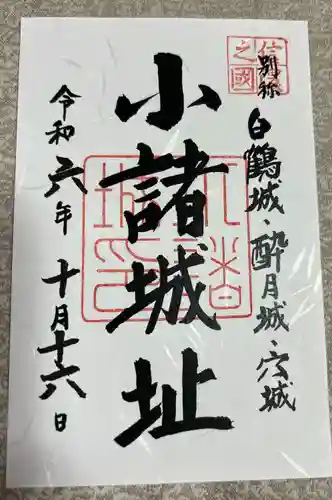 別称 白鶴城・酔月城・穴城
小諸城址
令和六年 十月十六日